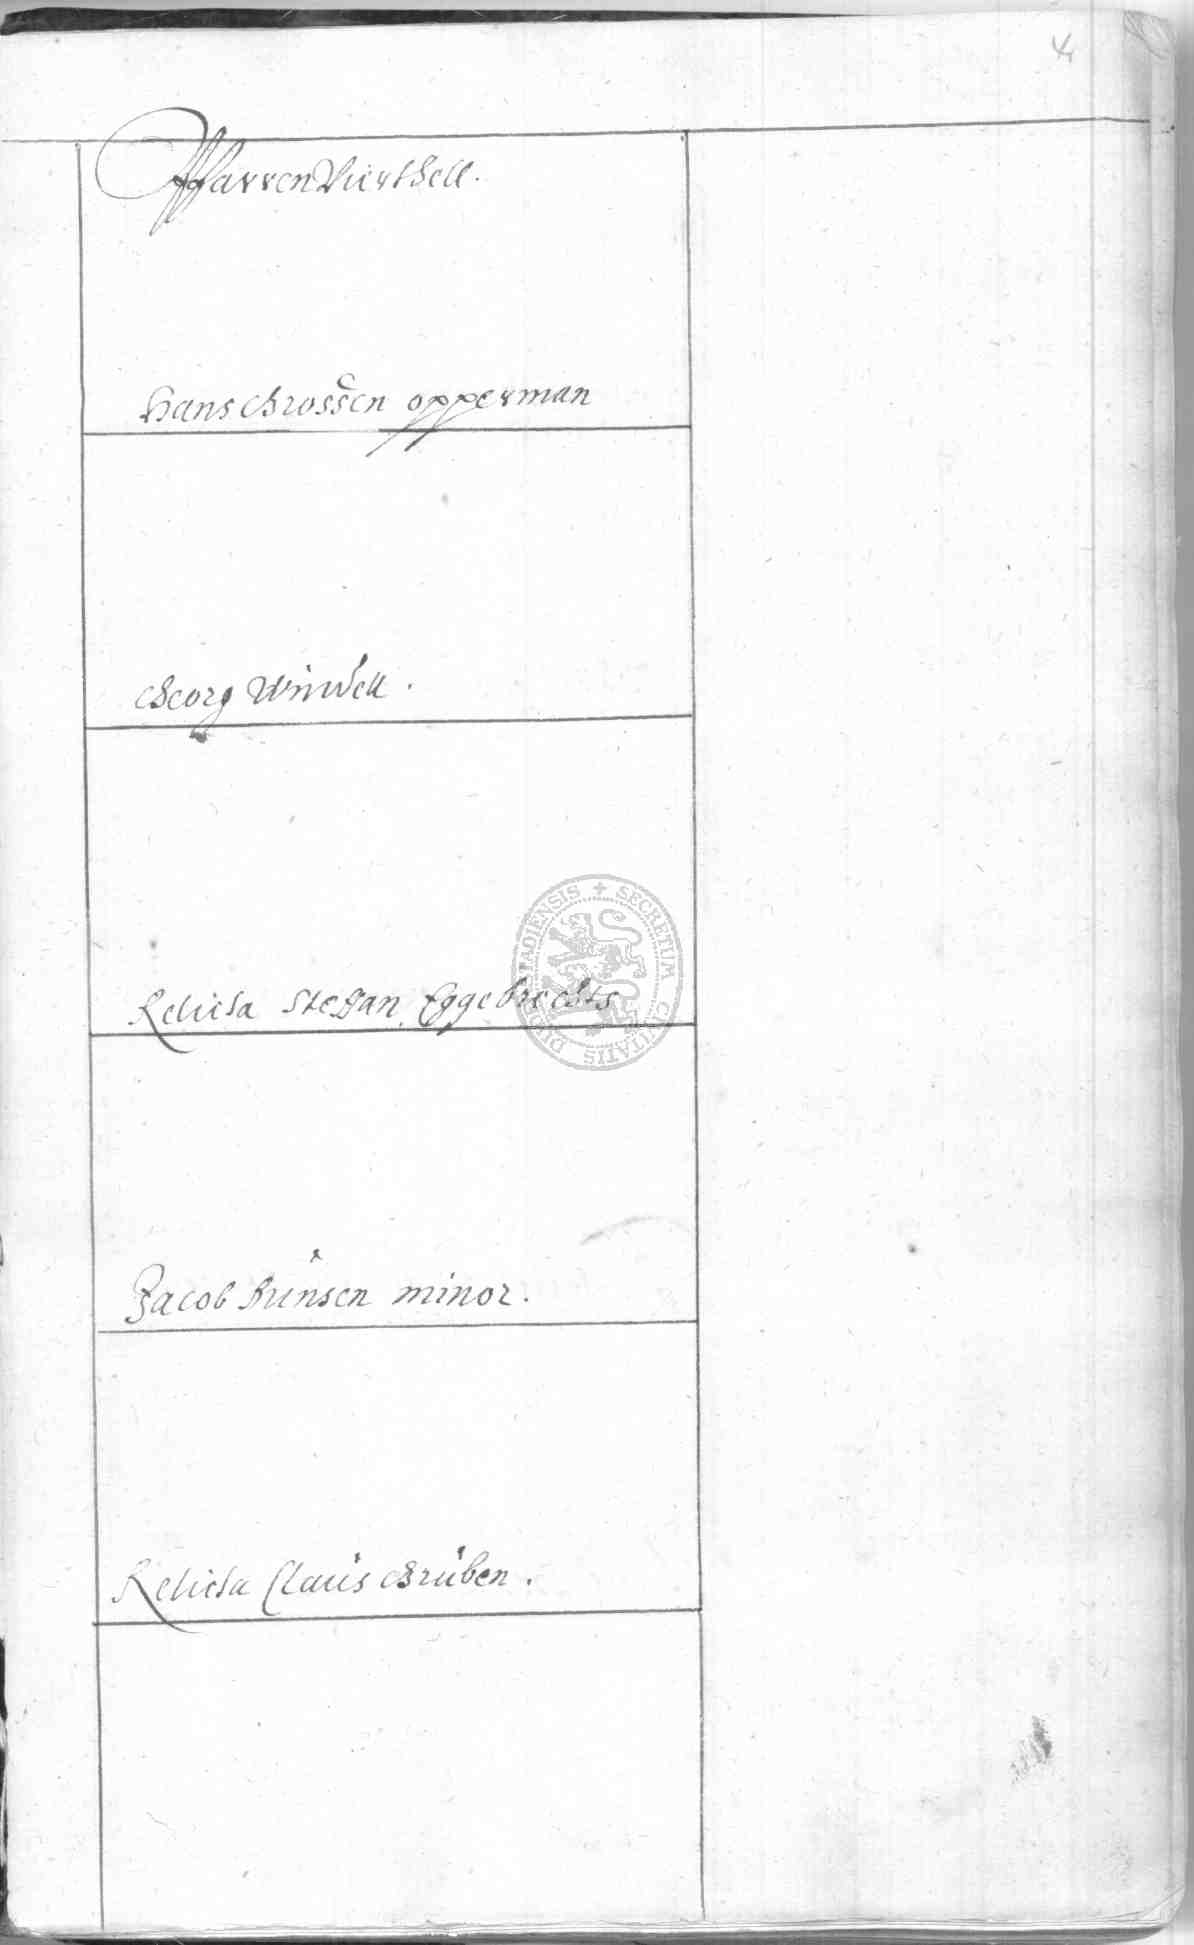 4
Pfarren Vierthell.
Hans Grossen opperman
Georg
Relicta Steffan Eggebrechts
SECRETUM CIVITATIS DUDERSTADIENSIS
Jacob minor.
Relicta Claus Gruben.